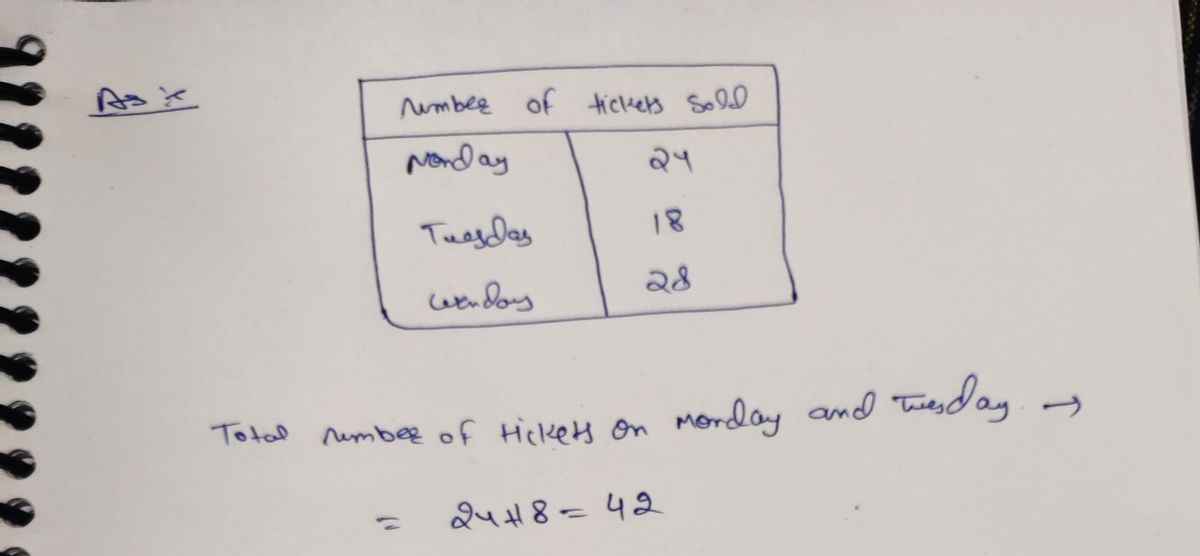 As :-
Number of tickets Sold
Monday 24
Tuesday 18
wenday 28
Total number of tickets on Monday and Tuesday. →
= 24+18 = 42